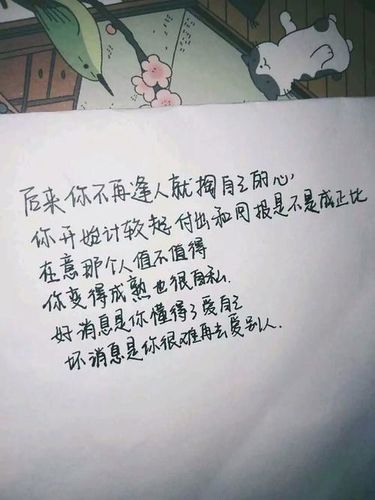 后来你不再逢人就掏自己的心,
你开始计较起付出和回报是不是成正比
在意那个人值不值得
你变得成熟也很自私.
好消息是你懂得了爱自己
坏消息是你很难再去爱别人.